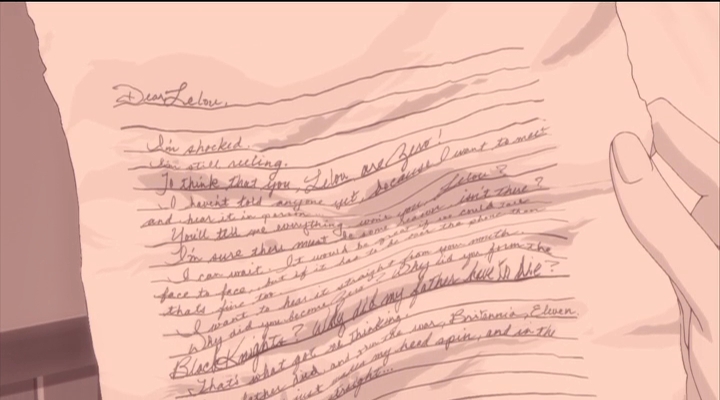 Dear Lelou,
I'm shocked.
I'm still reeling.
To think that you, Lelou are Zero!
I haven't told anyone yet, because I want to meet
and hear it in person.
You'll tell me everything won't you, Lelou?
I'm sure there must be some reason, isn't there?
I can wait. It would be great if we could talk
face to face, but if it has to be over the phone then
that's fine too.
I want to hear it straight from your mouth.
Why did you become Zero? Why did you form the
Black Knights? Why did my father have to die?
That's what got me thinking.
father died and the war, Britannia, Eleven,
just my head spin, and in the
straight...